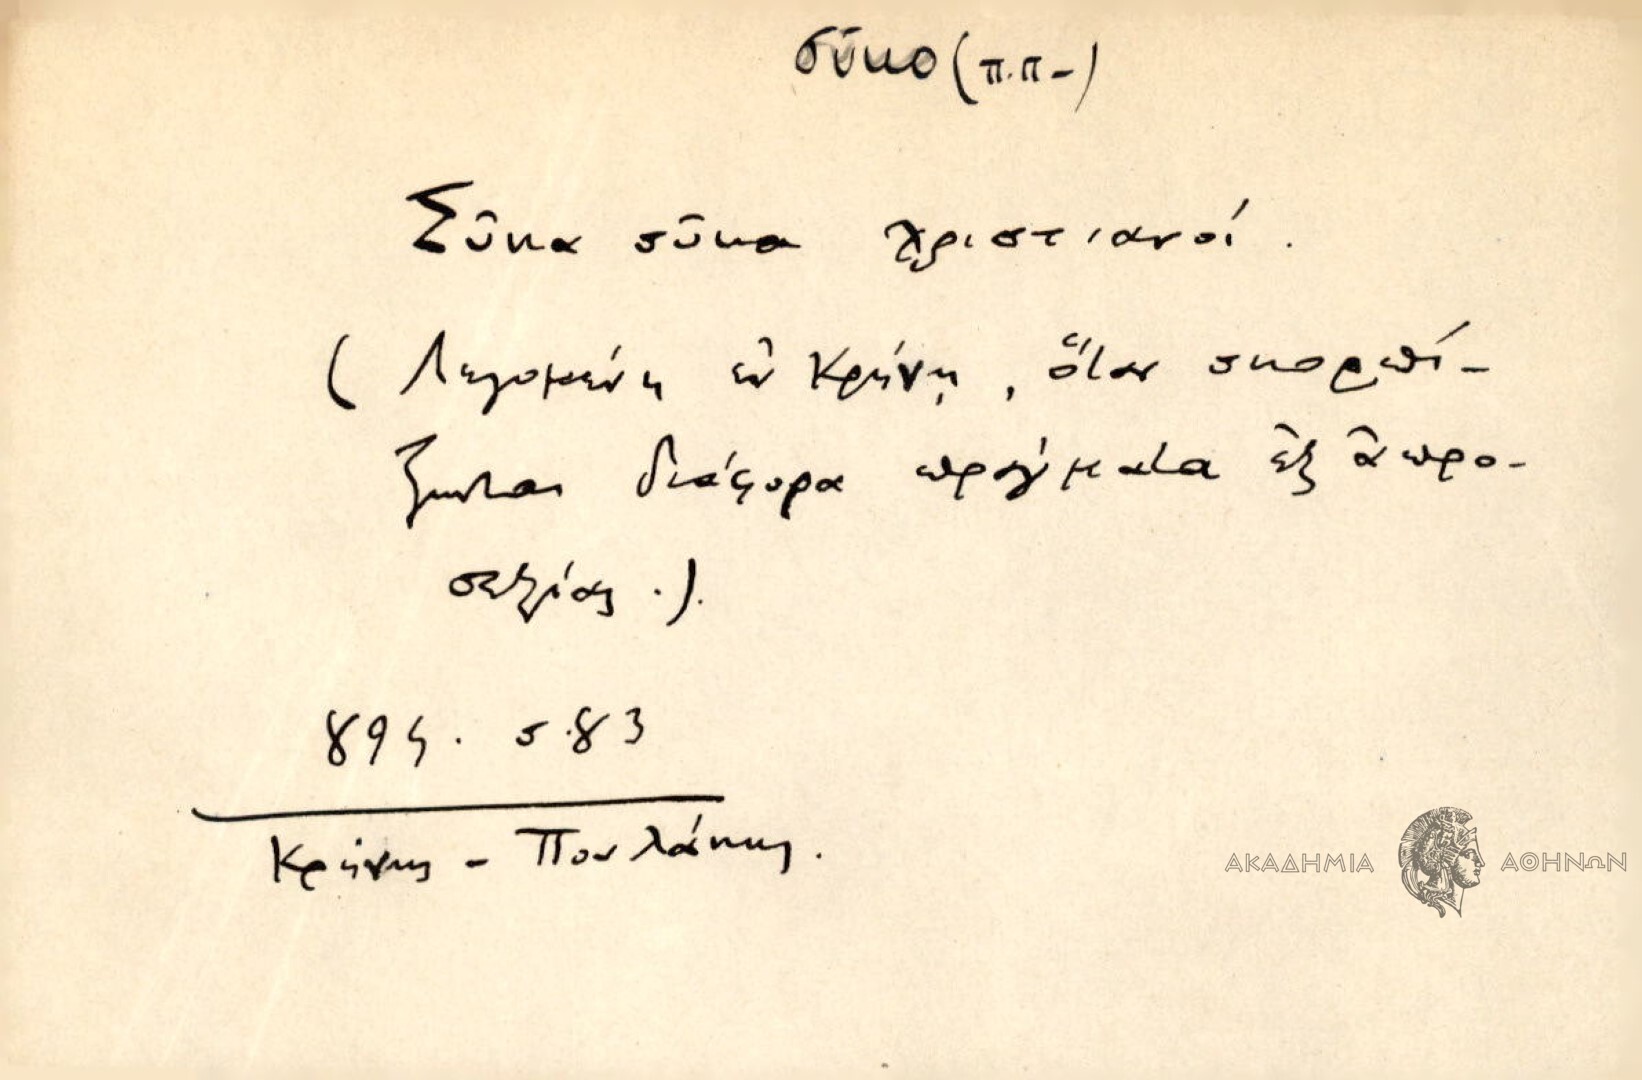 σῦκο (π.π-)
Σῦκα σῦκα χριστιανοί.
(Λεγομένη ἐν Κρήνῃ, ὅταν σκορπί-
ζωνται διάφορα πράγματα ἐξ ἀπρο-
σεξίας.).
894. σ.83
Κρήνης - Πουλάκης.
ΑΚΑΔΗΜΙΑ ΑΘΗΝΩΝ